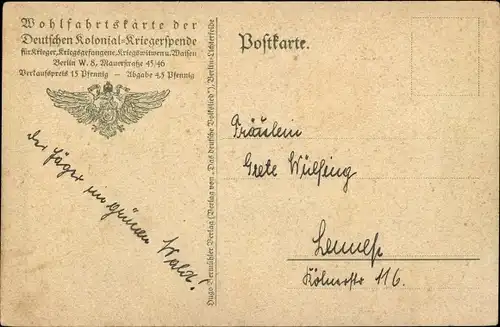 Wohlfahrtskarte der
Deutschen Kolonial-Kriegerspende
für Krieger, Kriegsgefangene, Kriegswitwen u. Waisen
Berlin W. 8, Mauerstraße 45/46
Verkaufspreis 15 Pfennig — Abgabe 4,5 Pfennig
der Jäger im grünen Wald!
Hugo Vermühler Verlag (Verlag von „Das deutsche Volkslied"), Berlin-Lichterfelde
Postkarte.
Fräulein
Grete Wülfing
Lennep
Kölnerstr 116.